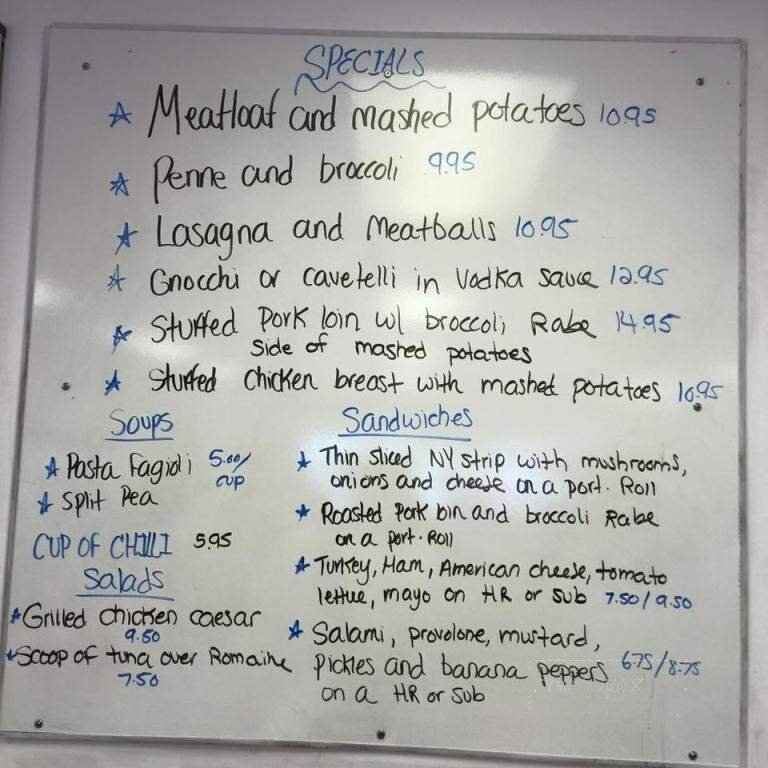 SPECIALS
☆ Meatloaf and mashed potatoes 10.95
☆ Penne and broccoli 9.95
☆ Lasagna and Meatballs 10.95
☆ Gnocchi or cavetelli in Vodka sauce 12.95
☆ Stuffed Pork loin w/ broccoli Rabe 14.95
side of mashed potatoes
☆ Stuffed chicken breast with mashed potatoes 10.95
Soups
☆ Pasta Fagioli 5.00/
cup
☆ Split Pea
CUP OF CHILLI 5.95
Salads
☆ Grilled chicken caesar
9.50
☆ Scoop of tuna over Romaine
7.50
Sandwiches
☆ Thin sliced NY strip with mushrooms,
onions and cheese on a port. Roll
☆ Roasted Pork loin and broccoli Rabe
on a port. Roll
☆ Turkey, Ham, American cheese, tomato
lettue, mayo on HR or sub 7.50/9.50
☆ Salami, provolone, mustard,
Pickles and banana peppers 6.75/8.75
on a HR or sub